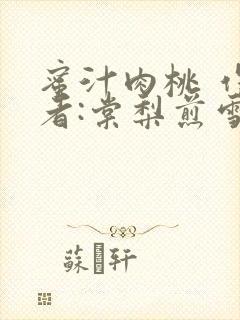 蜜汁肉桃
者:棠梨煎雪
蘇 轩